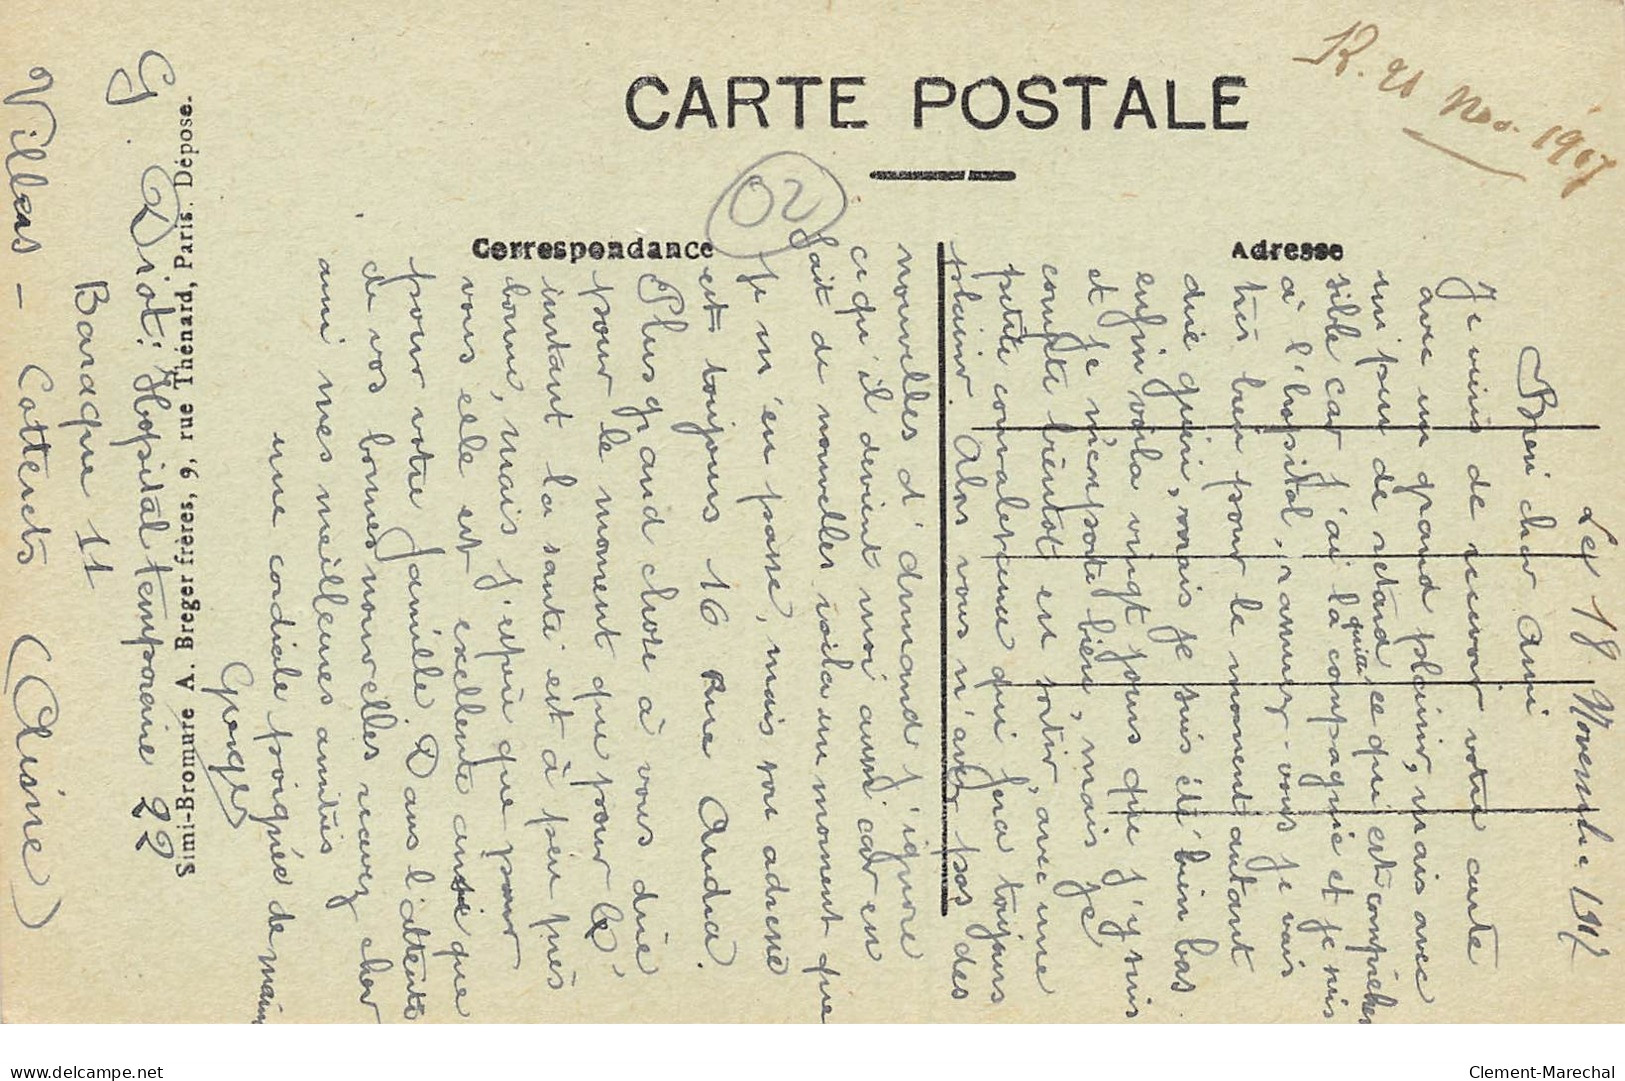 CARTE POSTALE
R. 21 Nov. 1917
02
Correspondance
Adresse
Le 18 Novembre 1917
Bien cher Ami
Je viens de recevoir votre carte
avec un grand plaisir, mais avec
un peu de retard ce qui est compréhen
sible car j'ai quitté la compagnie et je suis
à l'hopital, rassurez-vous je vais
très bien pour le moment autant
dire guéri, mais je suis été bien bas
enfin voila vingt jours que j'y suis
et je m'emporte bien, mais je
compte bientot en sortir, avec une
petite convalescence qui fera toujours
plaisir. Alors vous n'avez pas des
nouvelles d'Armand j'ignore
ce qu'il devient moi aussi car en
fait de nouvelles voila un moment que
je m'en passe, mais son adresse
est toujours 16 Rue Audra.
Plus grand chose à vous dire
pour le moment que pour le
instant la santé est à peu près
bonne, mais j'espère que pour
vous elle est exellente ansi que
pour votre famille. Dans l'attente
de vos bonnes nouvelles recevez cher
ami mes meilleures amitiés
une cordiale poignée de main
Georges
Simi-Bromure A. Breger frères, 9, rue Thénard, Paris. Déposé.
G. Diot. Hopital temporaire 22
Baraque 11
Villers - Cotterets (Aisne)
delcampe.net
Clement-Marechal